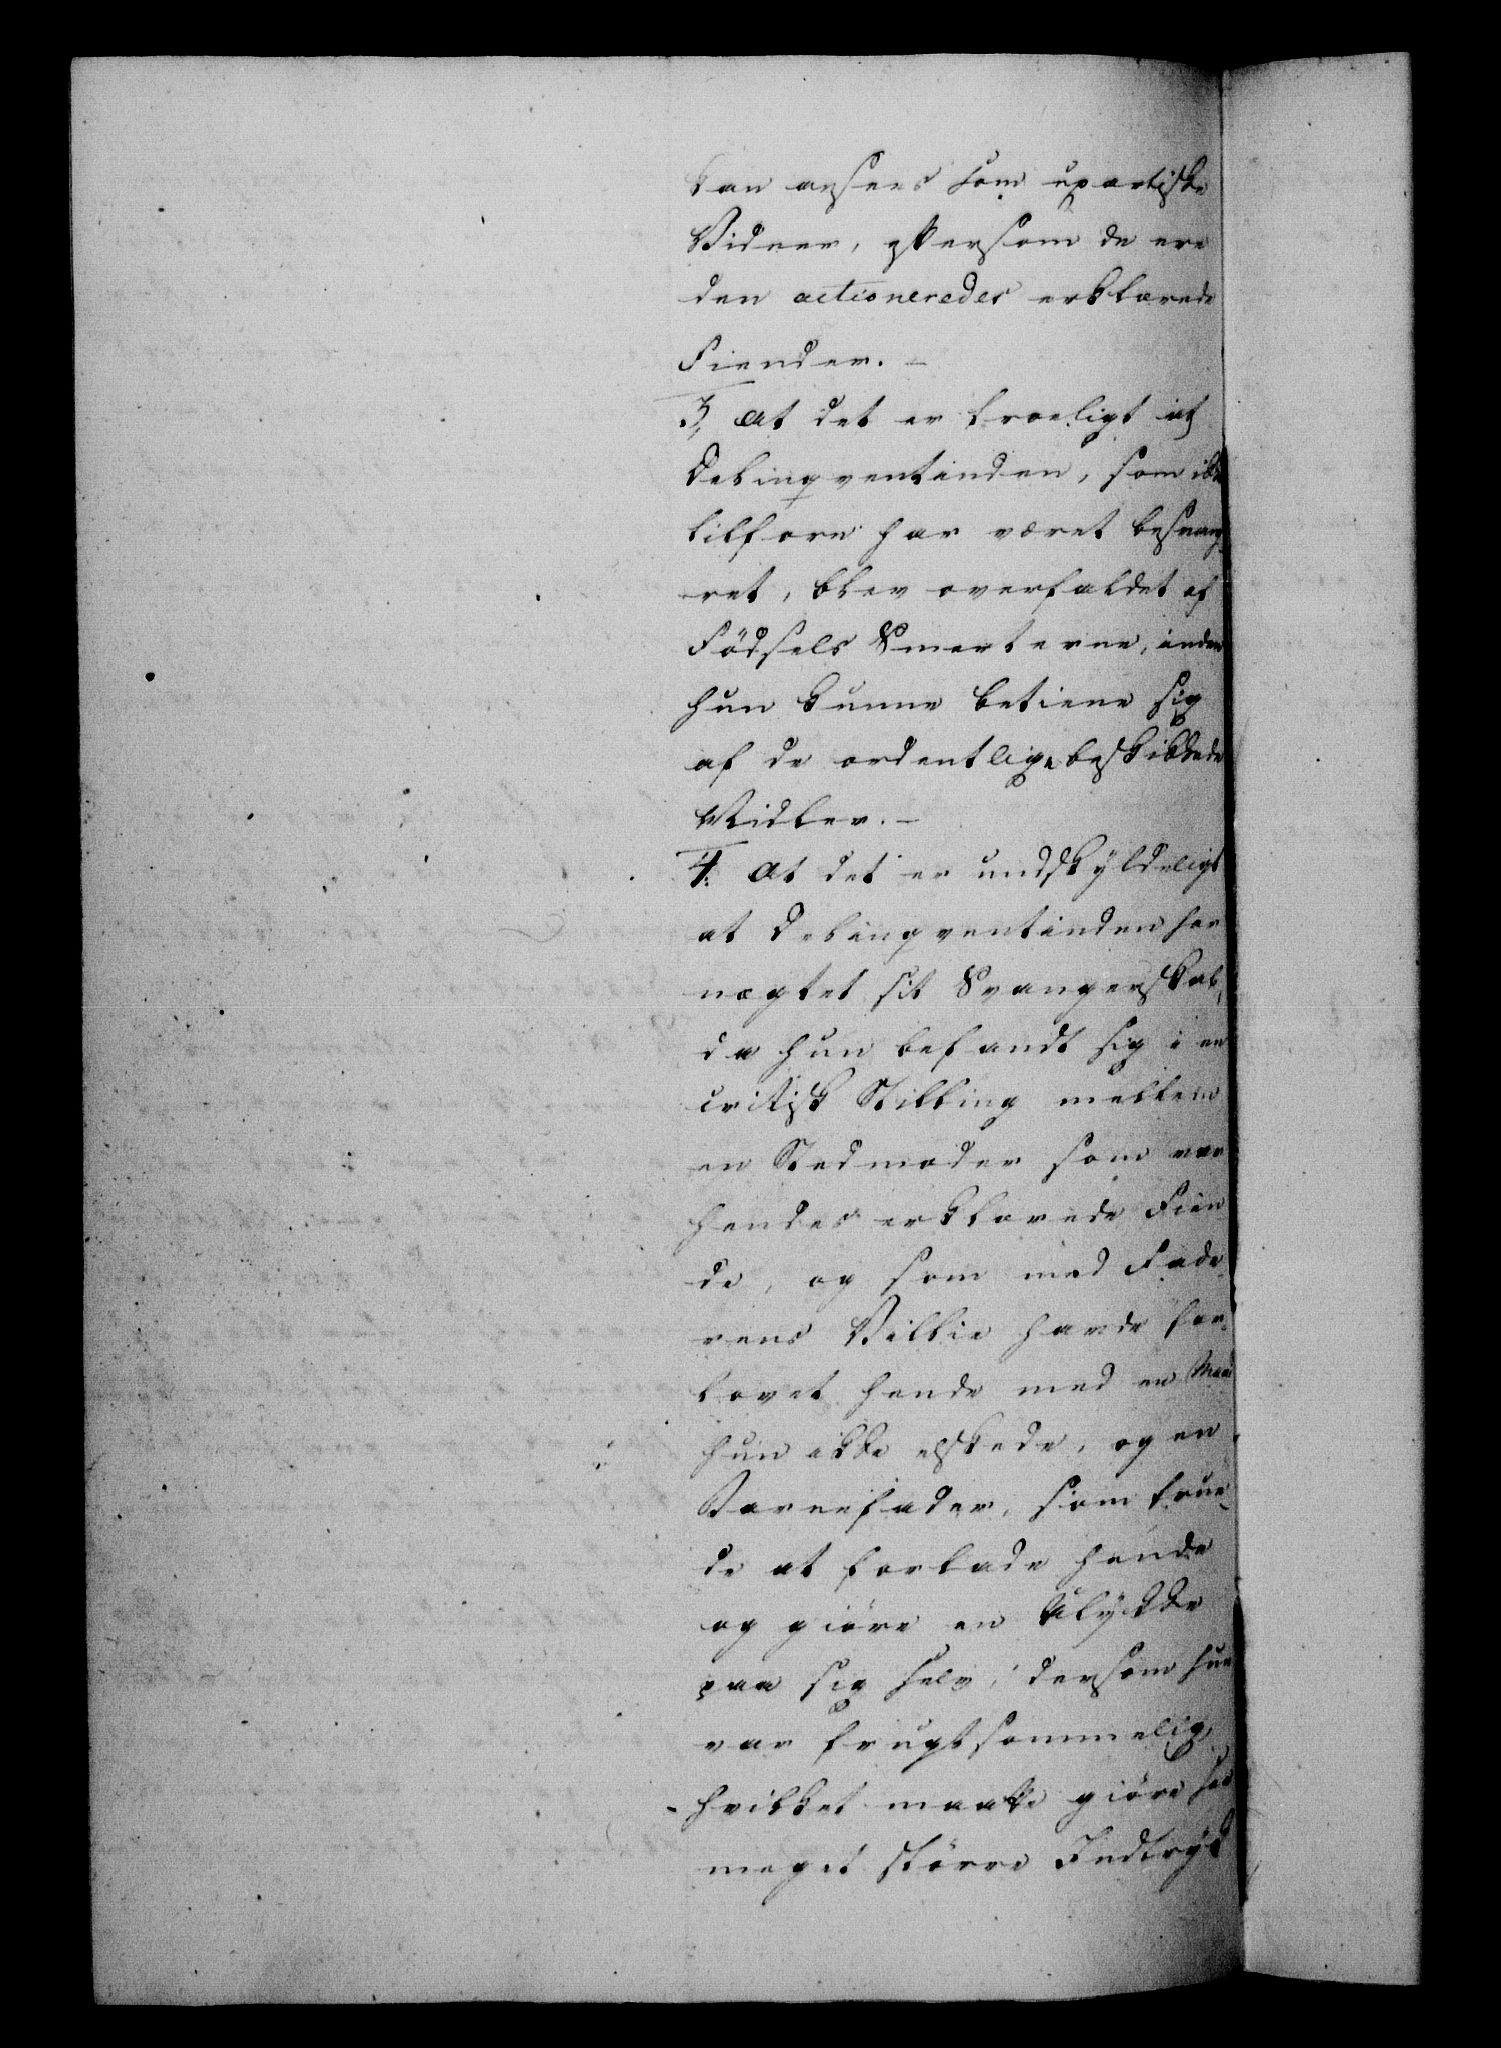 kan ansees som upartiske
Vidner, eftersom de ere
den actioneredes erklærede
Fiender. -
3, At det er troeligt at
Delinqventinden, som ikke
tilforn har været besvang-
ret, blev overfaldet af
Födsels Smerterne, inden
hun kunne betiene sig
af de ordentlige beskikkede
Midler. -
4. At det er undskyldeligt
at Delinqventinden har
nægtet sit Svangerskab,
da hun befandt sig i en
critisk Stilling mellem
en Stedmoder som var
hendes erklærede Fien
de, og som med Fade-
rens Villie havde for-
lovet hende med en Mand
hun ikke elskede, og en
Barnefader, som true-
de at forlade hende
og giöre en Ulykke
paa sig selv, dersom hun
var frugtsommelig,
hvilket maatte giöre saa
meget större Indtryk